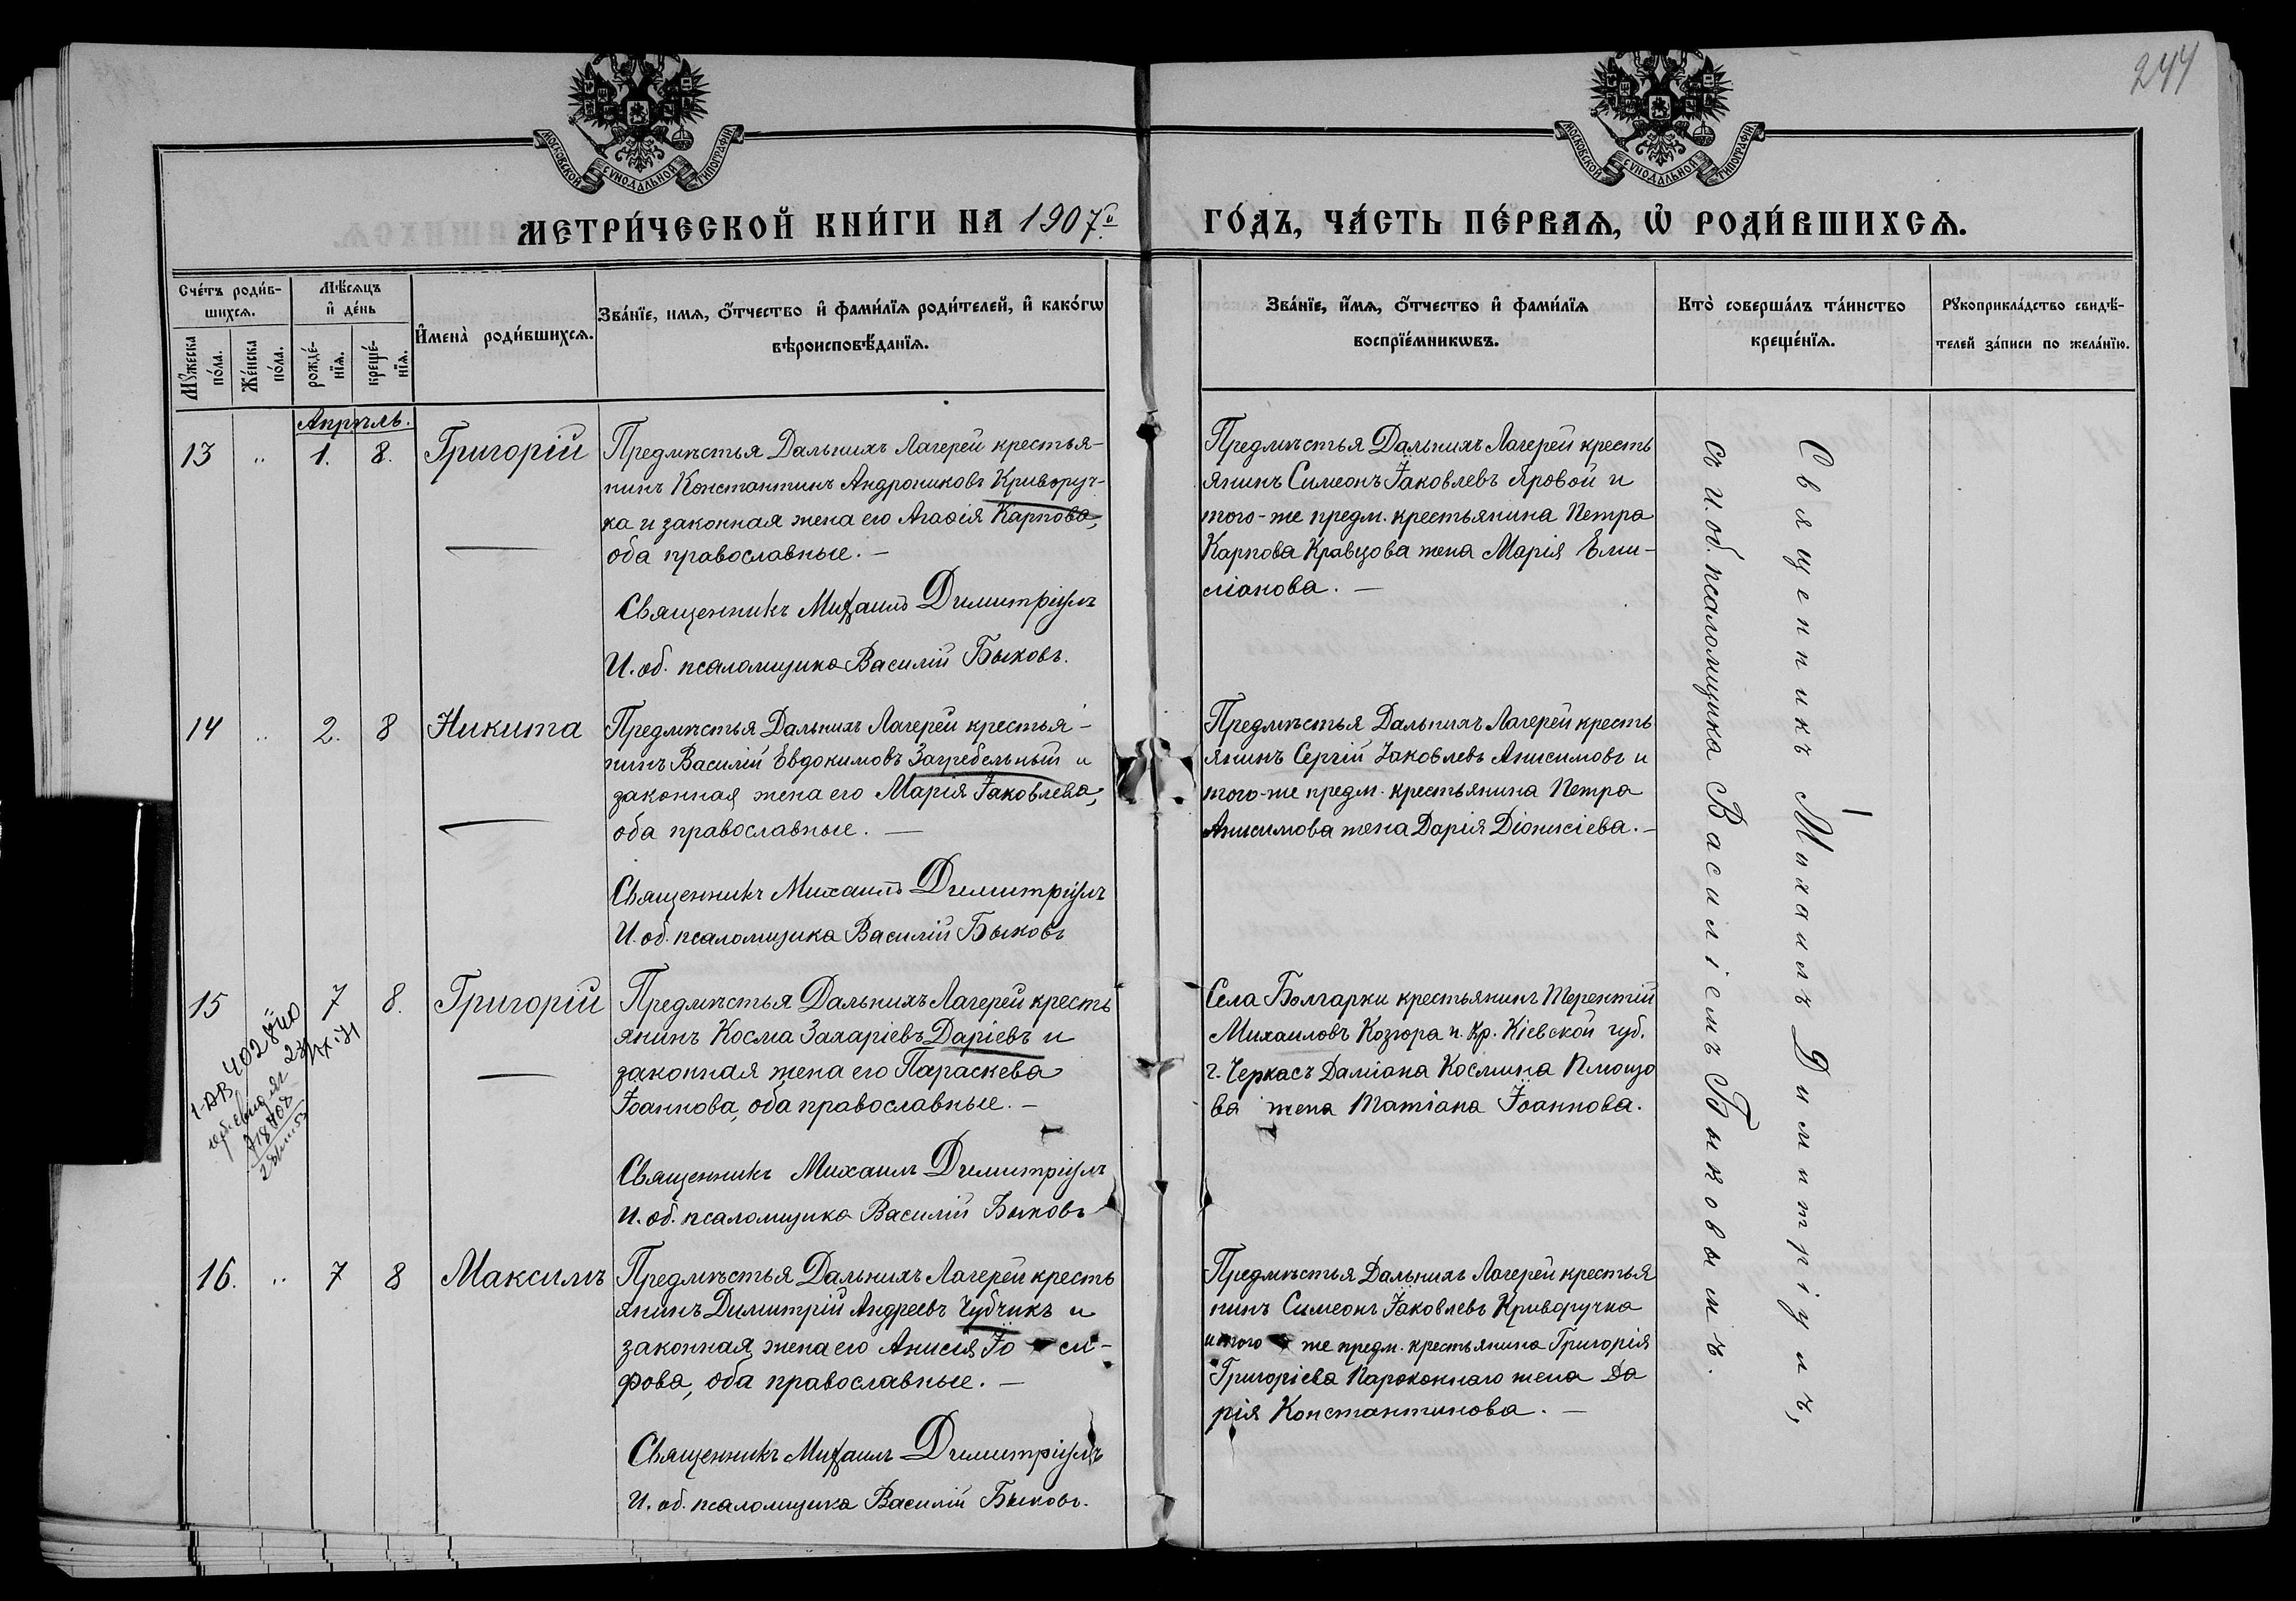 244
МОСКОВСКОЙ СѴНОДАЛЬНОЙ ТИПОГРАФІИ
МОСКОВСКОЙ СѴНОДАЛЬНОЙ ТИПОГРАФІИ
МЕТРИ́ЧЕСКОЙ КНИ́ГИ НА 1907й
ГО́ДЪ, ЧА́СТЬ ПЕ́РВАѦ, Ѡ҆ РОДИ́ВШИХСѦ.
Сче́тъ роди́в-
шихсѧ.
Мꙋ́жеска
по́ла.
Же́нска
по́ла.
Мѣ́сѧцъ
и҆ де́нь
рожде́-
нїѧ.
креще́-
нїѧ.
И҆мена̀ роди́вшихсѧ.
Зва́нїе, имѧ, ѻ҆́тчество и҆ фами́лїѧ роди́телей, и҆ како́гѡ
вѣроисповѣ́данїѧ.
Зва́нїе, и҆́мѧ, ѻ҆́тчество и҆ фами́лїѧ
воспрїе́мникѡвъ.
Кто̀ соверша́лъ та́инство
креще́нїѧ.
Рꙋкоприкла́дство свидѣ́-
телей за́писи по жела́нїю.
Апрѣль.
13 „ 1. 8. Григорій
Предмѣстья Дальнихъ Лагерей крестья-
нинъ Константинъ Андрониковъ Криворуч-
ка и законная жена его Агаѳія Карпова,
оба православные. —
Священникъ Михаилъ Димитріумъ
И. об. псаломщика Василій Быковъ.
Предмѣстья Дальнихъ Лагерей кресть
янинъ Симеонъ Іаковлевъ Яровой и
того-же предм. крестьянина Петра
Карпова Кравцова жена Марія Еми-
ліанова. —
14 „ 2. 8 Никита
Предмѣстья Дальнихъ Лагерей крестья-
нинъ Василій Евдокимовъ Загребельный и
законная жена его Марія Іаковлева,
оба православные. —
Священникъ Михаилъ Димитріумъ
И. об. псаломщика Василій Быковъ
Предмѣстья Дальнихъ Лагерей кресть
янинъ Сергій Іаковлевъ Анисимовъ и
того-же предм. крестьянина Петра
Анисимова жена Дарія Діонисіева. —
15 7 8. Григорій
Предмѣстья Дальнихъ Лагерей кресть
янинъ Косма Захаріевъ Даріевъ и
законная жена его Параскева
Іоаннова, оба православные. —
Священникъ Михаилъ Димитріумъ
И. об. псаломщика Василій Быковъ
Села Болгарки крестьянинъ Терентій
Михаиловъ Козюра и кр. Кіевской губ.
г. Черкасъ Даміана Космина Плющо
ва жена Татіана Іоаннова.
16. „ 7 8 Максимъ
Предмѣстья Дальнихъ Лагерей кресть
янинъ Димитрій Андреевъ Чубчикъ и
законная жена его Анисія Іо си-
фова, оба православные. —
Священникъ Михаилъ Димитріумъ
И. об. псаломщика Василій Быковъ.
Предмѣстья Дальнихъ Лагерей крестья
нинъ Симеонъ Іаковлевъ Криворучка
и того же предм. крестьянина Григорія
Григоріева Пароконнаго жена Да
рія Константинова. —
Священникъ Михаилъ Димитріумъ,
съ И. об. псаломщика Василіемъ Быковымъ.